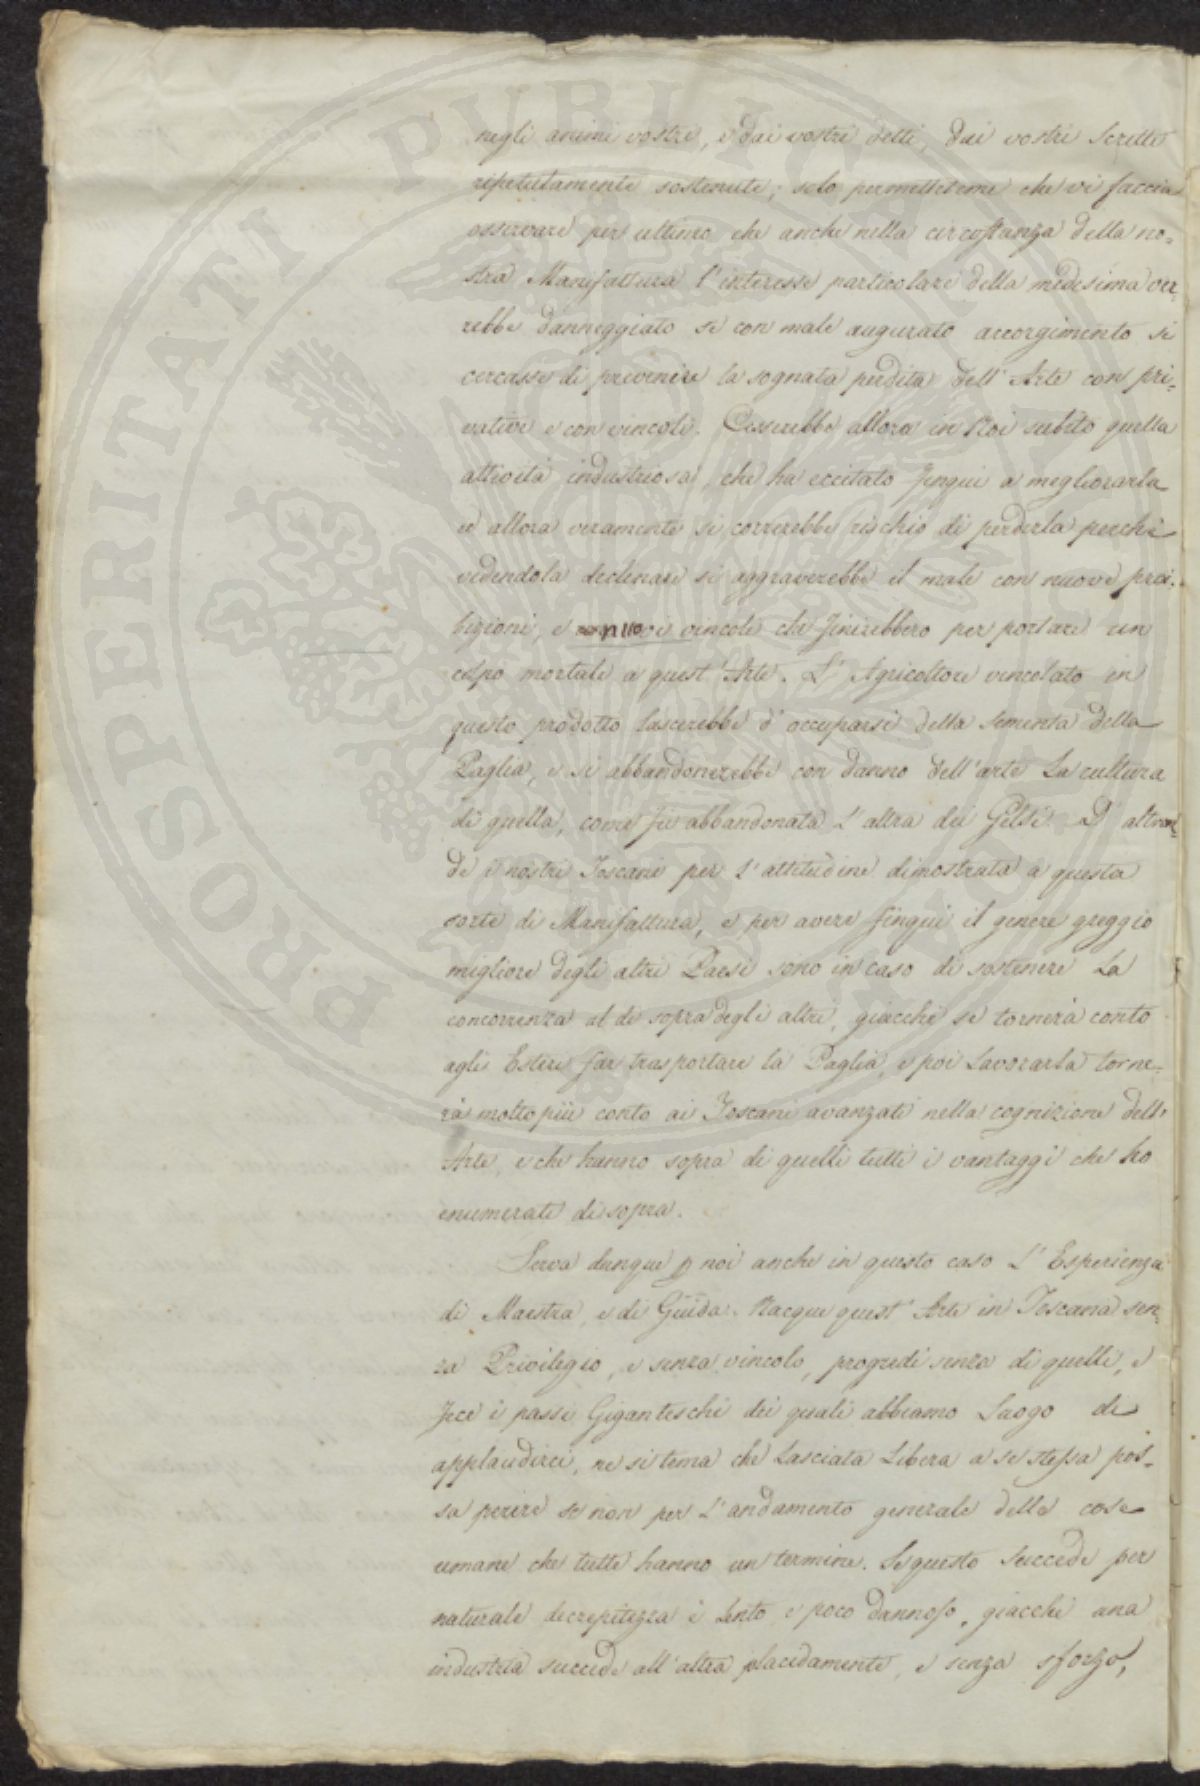 negli animi vostri, e dai vostri detti, dai vostri Scritti
ripetutamente sostenute; solo permettetemi che vi faccia
osservare per ultimo che anche nella circostanza della no=
stra Manifattura l'interesse particolare della medesima ver=
rebbe danneggiato se con male augurato accorgimento si
cercasse di prevenire la sognata perdita dell'Arte con pri=
vative e con vincoli. Cesserebbe allora in Noi subito quella
attività industriosa, che ha eccitato fingui a megliorarla
e allora veramente si correrebbe rischio di perderla perchè
vedendola declinare si aggraverebbe il male con nuove proi=
bizioni, e nuovi vincoli che finirebbero per portare un
colpo mortale a quest'Arte. L'Agricoltore vincolato in
questo prodotto lascerebbe d'occuparsi della sementa della
Paglia, e si abbandonerebbe con danno dell'arte La cultura
di quella, come fù abbandonata L'altra dei Gelsi. D'altron=
de i nostri Toscani per L'attitudine dimostrata a questa
sorte di Manifattura, e per avere fingui il genere greggio
migliore degli altri Paesi sono in caso di sostenere La
concorrenza al di sopra degli altri, giacchè se tornerà conto
agli Esteri far trasportare la Paglia, e poi Lavorarla torne=
rà molto più conto ai Toscani avanzati nella cognizione dell'
Arte, e che hanno sopra di quelli tutti i vantaggi che ho
enumerati di sopra.
Serva dunque p noi anche in questo caso L'Esperienza
di Maestra, e di Guida. Nacque quest'Arte in Toscana sen=
za Privilegio, e senza vincolo, progredì senza di quelli, e
fece i passi Giganteschi dei quali abbiamo Luogo di
applaudirci, ne si tema che Lasciata Libera a se stessa pos=
sa perire se non per L'andamento generale delle cose
umane che tutte hanno un termine. Se questo succede per
naturale decrepitezza è Lento, e poco dannoso, giacchè una
industria succede all'altra placidamente, e senza sforzo,
PROSPERITATI PUBLICAE